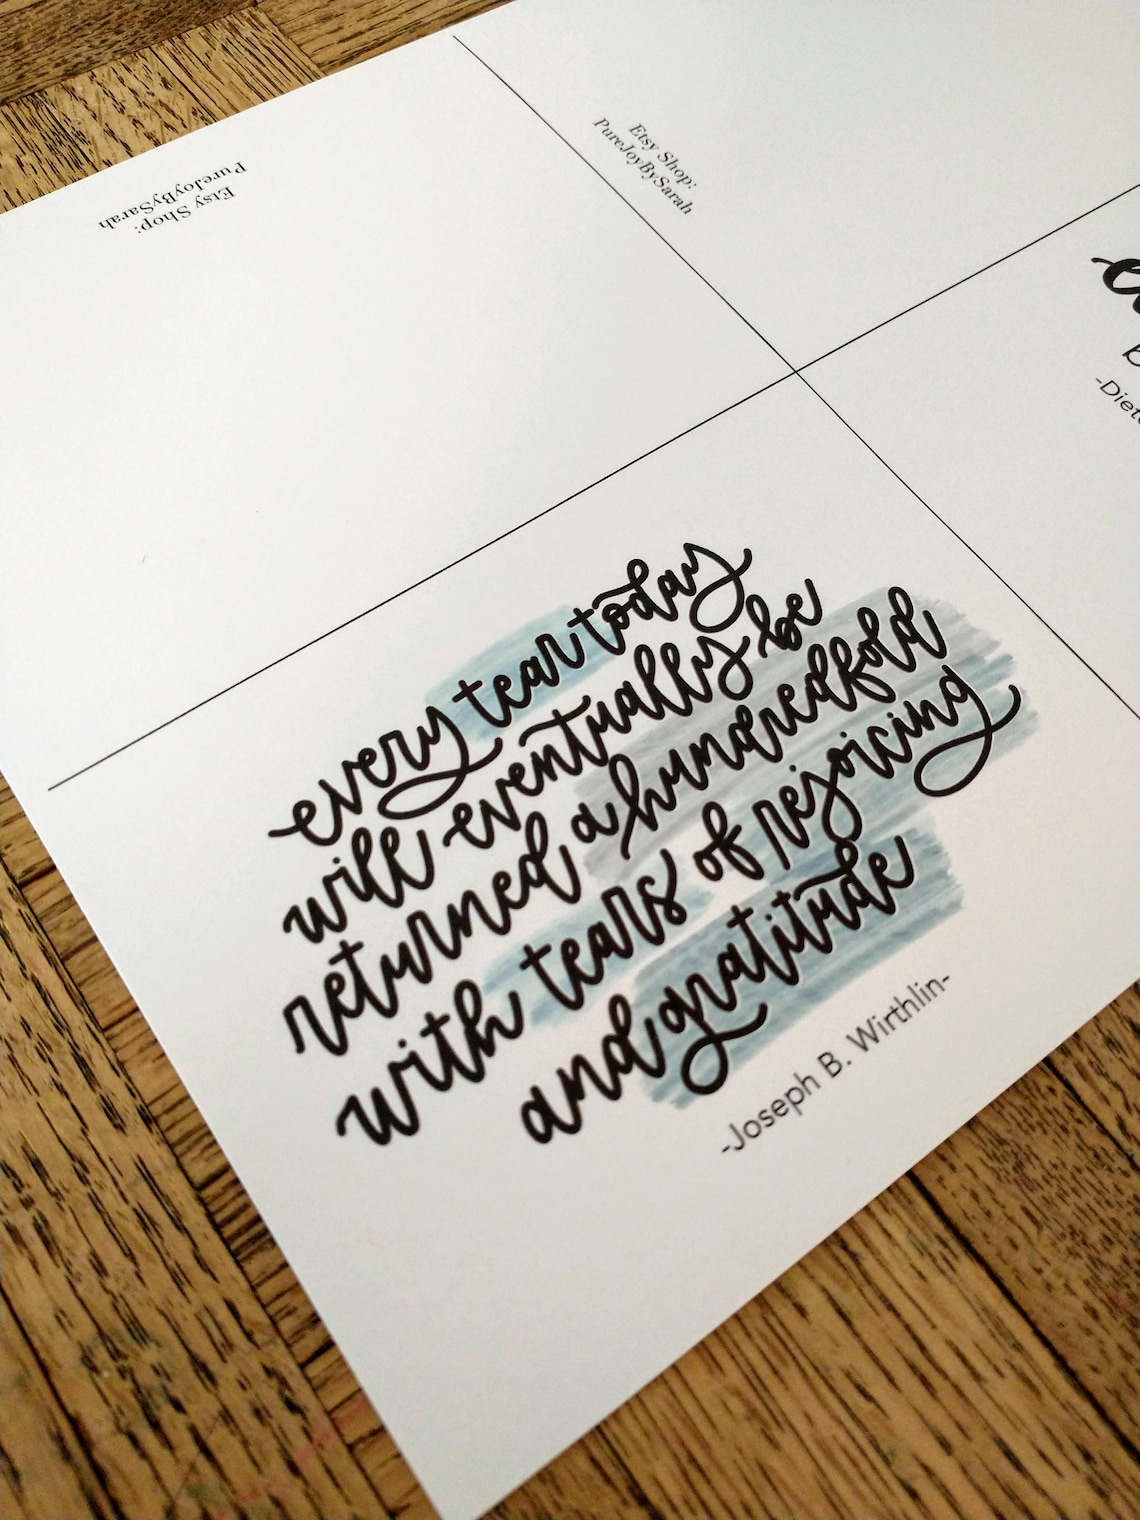 Etsy Shop:
PureJoyBySarah
Etsy Shop:
PureJoyBySarah
every tear today
will eventually be
returned a hundredfold
with tears of rejoicing
and gratitude
-Joseph B. Wirthlin-